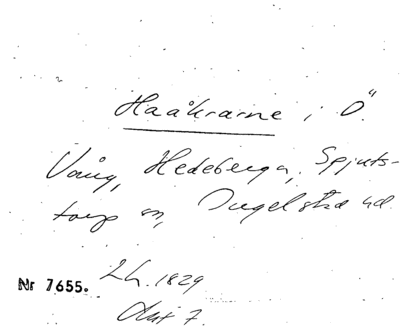 Haåkrarne i Ö.
Vång, Hedeberga, Spjuts-
torp sn, Ingelstad hd.
Nr 7655. L.h. 1829
Akt 7.